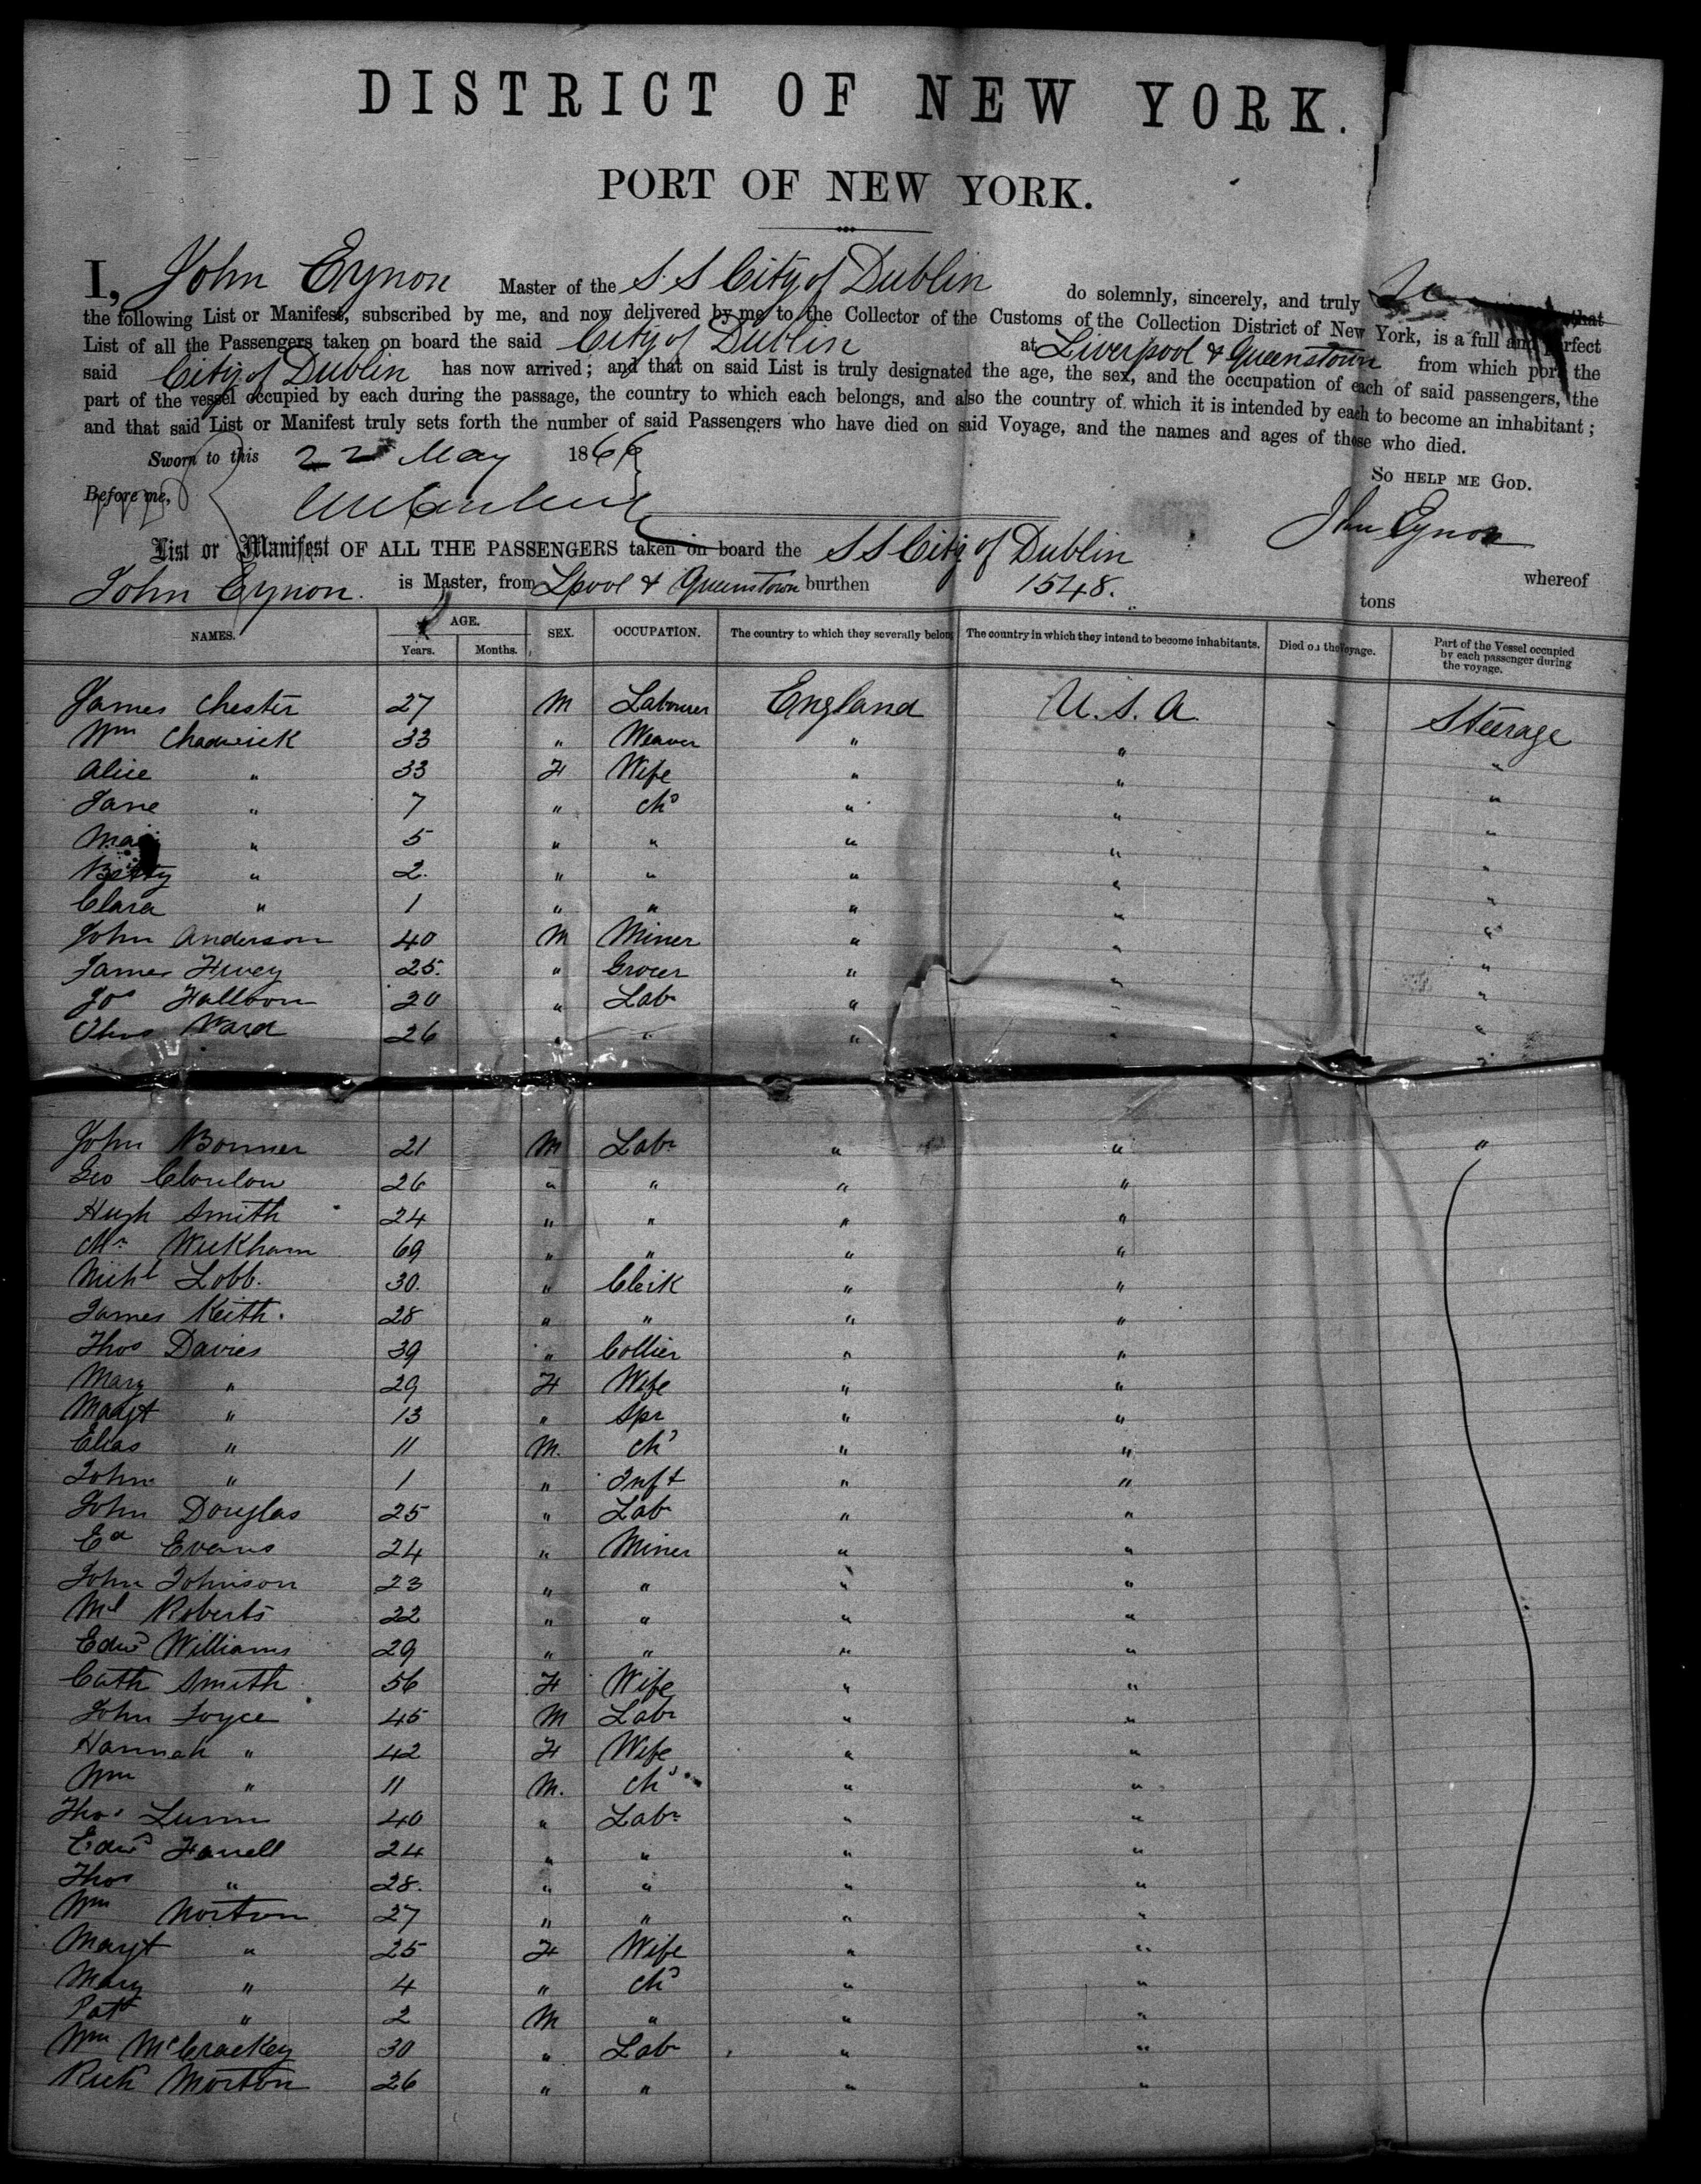 DISTRICT OF NEW YORK.
PORT OF NEW YORK.
I, John Eynon Master of the S.S City of Dublin do solemnly, sincerely, and truly that
the following List or Manifest, subscribed by me, and now delivered by me to the Collector of the Customs of the Collection District of New York, is a full and perfect
List of all the Passengers taken on board the said City of Dublin at Liverpool & Queenstown from which port the
said City of Dublin has now arrived; and that on said List is truly designated the age, the sex, and the occupation of each of said passengers, the
part of the vessel occupied by each during the passage, the country to which each belongs, and also the country of which it is intended by each to become an inhabitant;
and that said List or Manifest truly sets forth the number of said Passengers who have died on said Voyage, and the names and ages of those who died.
Sworn to this 22 May 1866
So HELP ME GOD.
Before me,
John Eynon
List or Manifest OF ALL THE PASSENGERS taken on board the S S City of Dublin whereof
John Eynon. is Master, from Lpool & Queenstown burthen 1548. tons
NAMES. AGE. Years. Months. SEX. OCCUPATION. The country to which they severally belong The country in which they intend to become inhabitants. Died on the Voyage. Part of the Vessel occupied by each passenger during the voyage.
James Chester 27 M Labourer England U.S.A. - Steerage
Wm Chadwick 33 " Weaver " " "
Alice " 33 F Wife " " "
Jane " 7 " chd " " "
" 5 " " " " "
Betty " 2. " " " " "
Clara " 1 " " " " "
John Anderson 40 M Miner " " "
James 25. " Grocer " " "
Jos 20 " Labr " " "
Thos Ward 26 " " " " "
John Bonner 21 M Labr " " "
Geo 26 " " " "
Hugh Smith 24 " " " "
Mr Wickham 69 " " " "
Michl Lobb. 30. " Clerk " "
James Keith. 28 " " " "
Thos Davies 39 " Collier " "
Mary " 29 F Wife " "
Margt " 13 " Spr " "
Elias " 11 M. chd " "
John " 1 " Inft " "
John Douglas 25 " Labr " "
Ed Evans 24 " Miner " "
John Johnson 23 " " " "
Ml Roberts 22 " " " "
Edwd Williams 29 " " " "
Cath Smith 56 F Wife " "
John Joyce 45 M Labr " "
Hannah " 42 F Wife " "
Wm " 11 M. chd " "
Thos Lunn 40 " Labr " "
Edwd Farrell 24 " " " "
Thos " 28. " " " "
Wm Norton 27 " " " "
Margt " 25 F Wife " "
Mary " 4 " chd " "
Patk " 2 M " " "
Wm McCrackey 30 " Labr " "
Richd Morton 26 " " " "